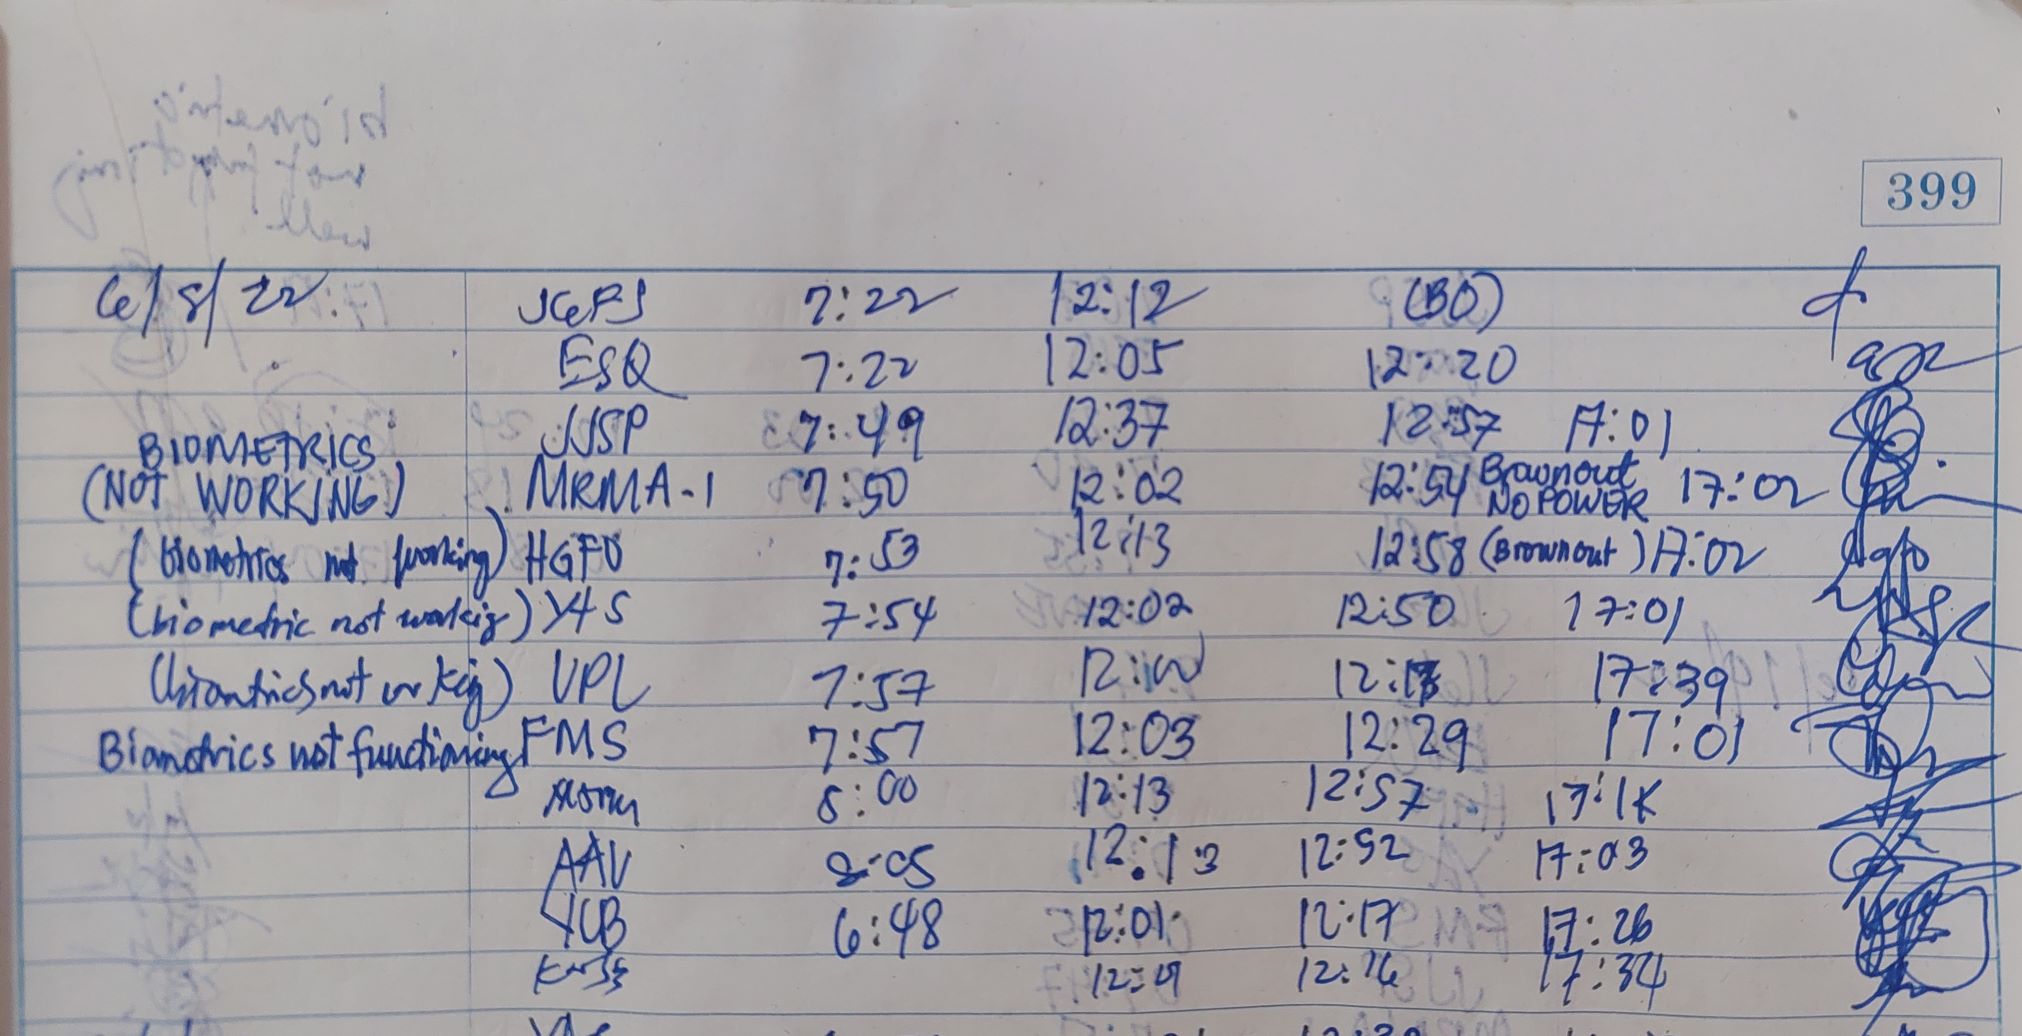 399
6/8/22 JGPS 7:22 12:12 (BO)
ESQ 7:22 12:05 12:20
JJSP 7:49 12:37 12:57 17:01
BIOMETRICS
(NOT WORKING) MRMA-1 7:50 12:02 12:54 Brownout NO POWER 17:02
(biometrics not working) HGFO 7:53 12:13 12:58 (Brownout) 17:02
(biometric not workig) YAS 7:54 12:02 12:50 17:01
not VPL 7:57 17:39
Biometrics not functioning FMS 7:57 12:03 12:29 17:01
8:00 12:13 12:57
AAV 8:05 12:13 12:52 17:03
YCB 6:48 12:01 12:17 17:26
12:26 17:34